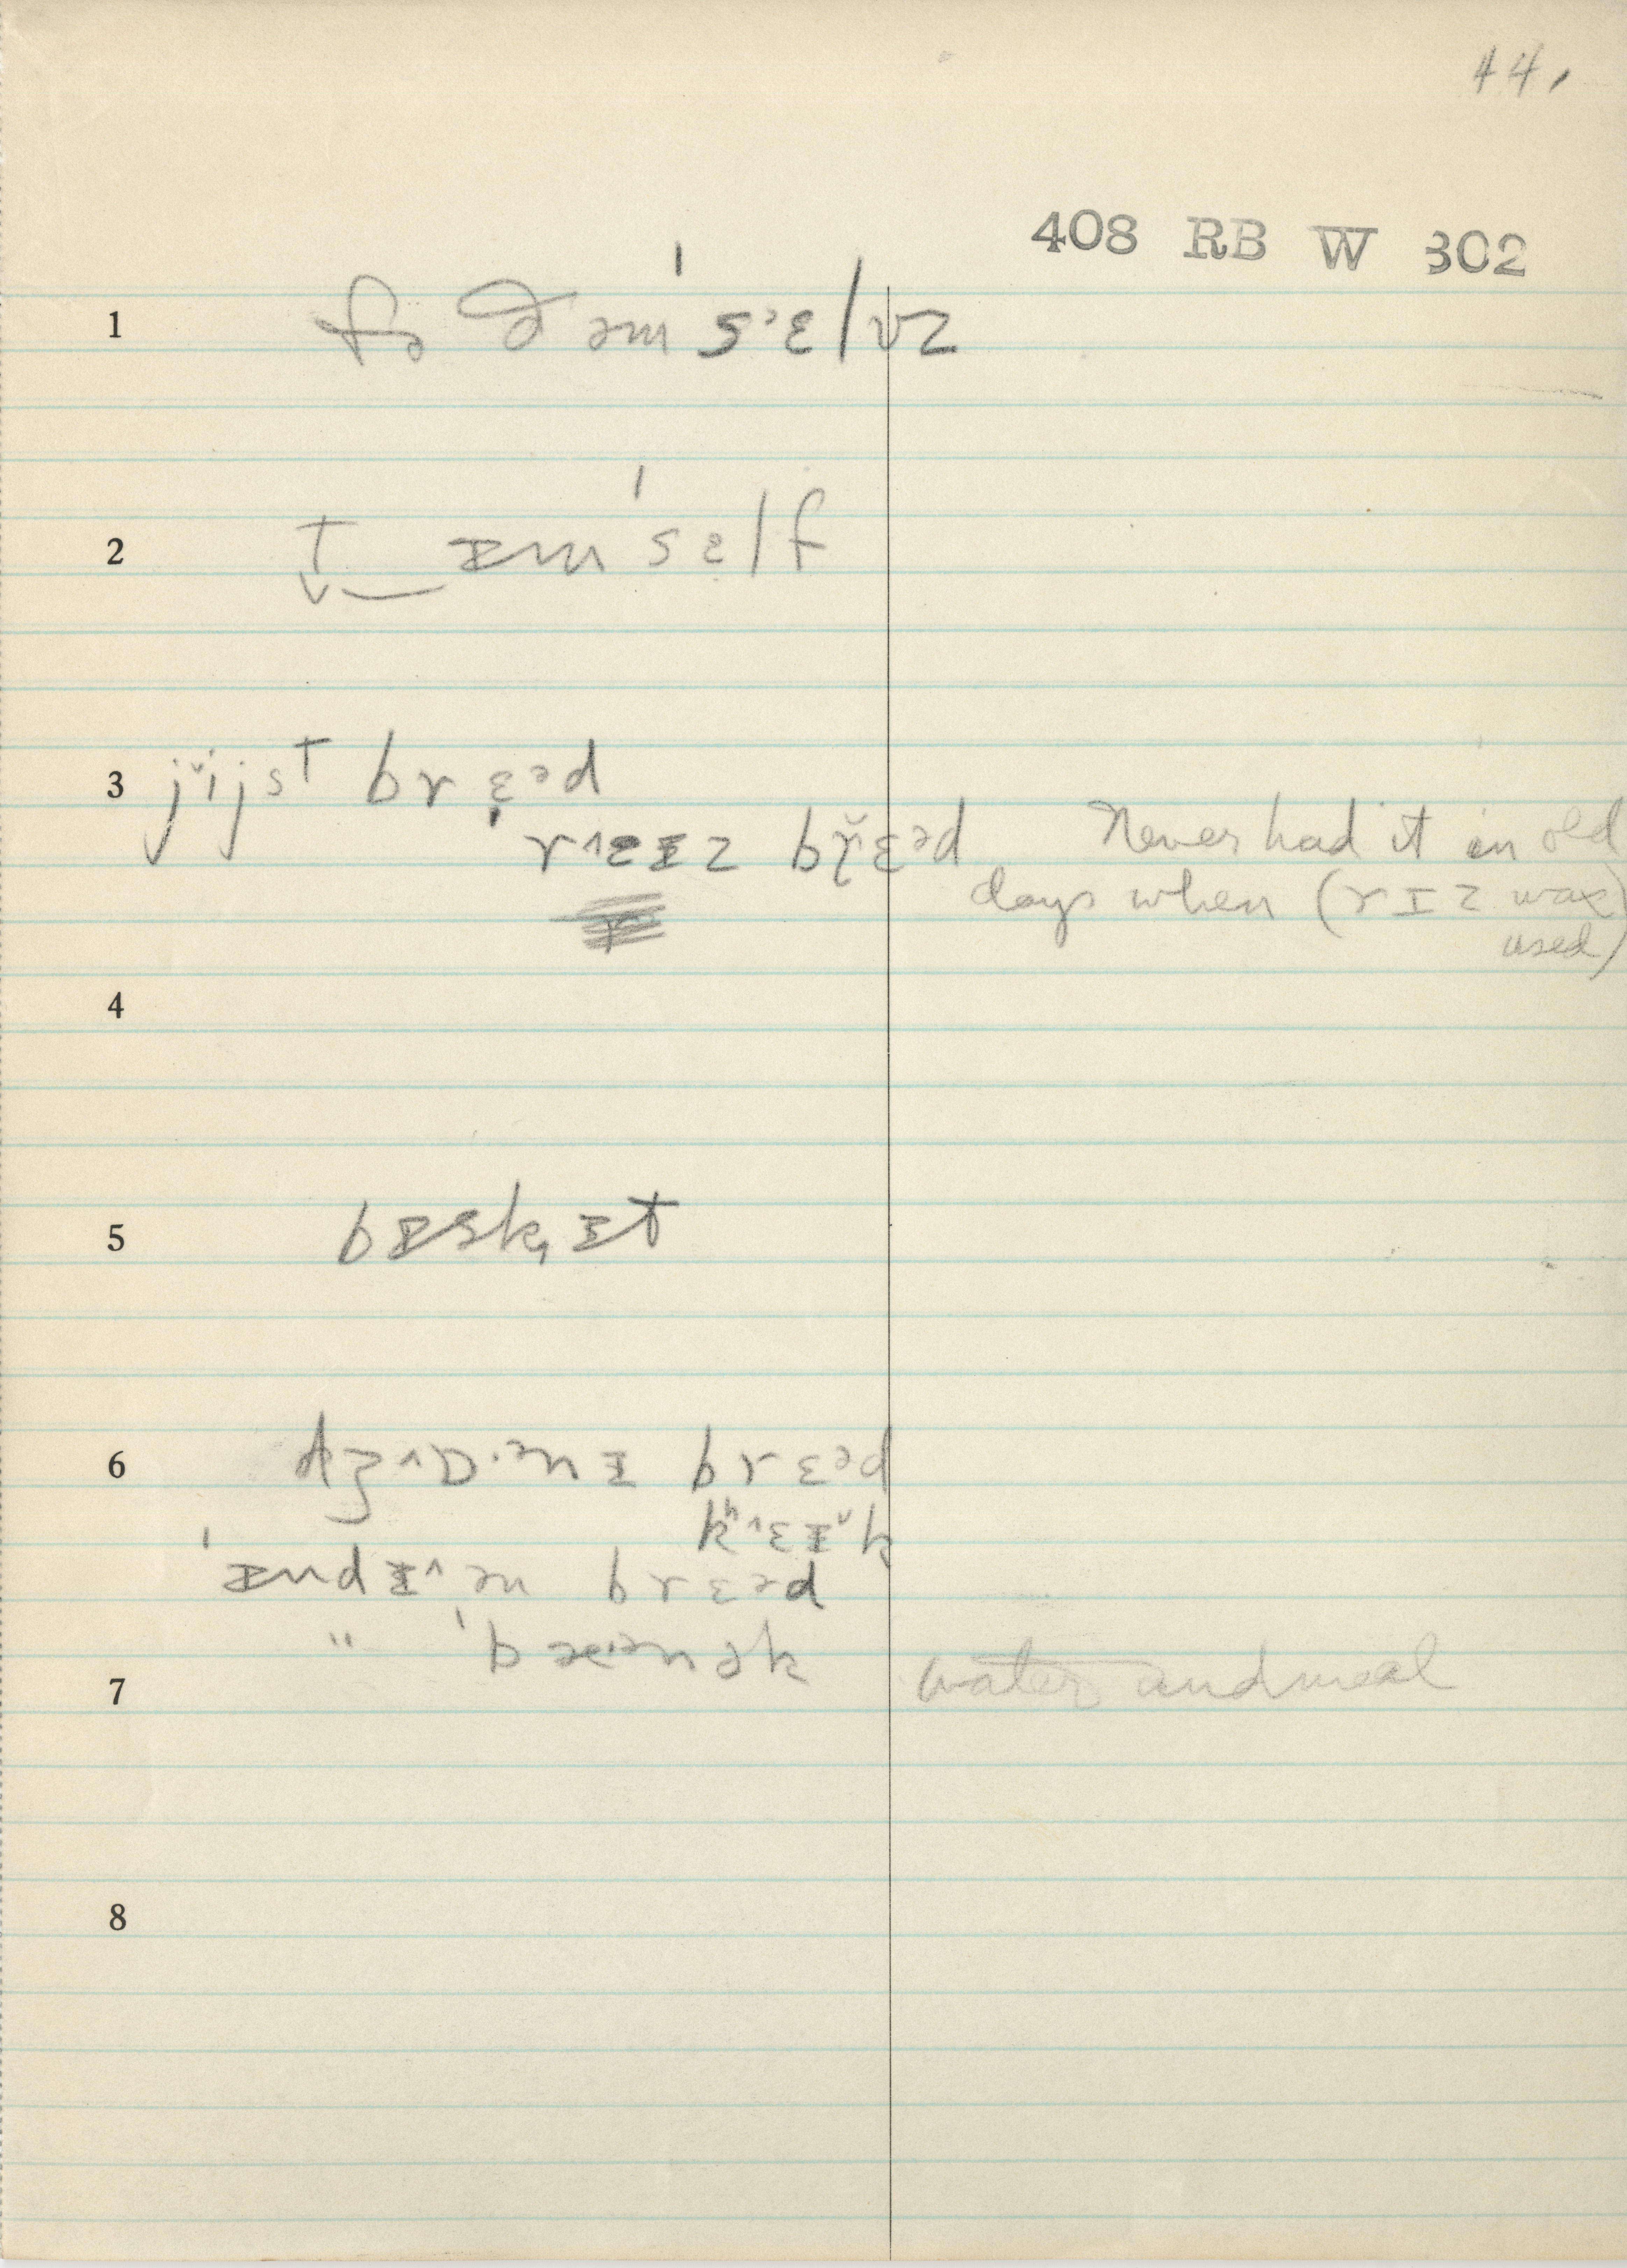 44.
408 RB W 302
1 fɚ ðəm'sᵊɛlvz
2 t ɪm'sɛlf
3 jijst brɛᵊd
rɛɪz brɛᵊd Never had it in old
days when (rɪz was
used)
4
5 bɪskɪt
6 dʒɒnɪ brɛᵊd
kɛɪk
'ɪndɪən brɛᵊd
" 'bænək water and meal
7
8